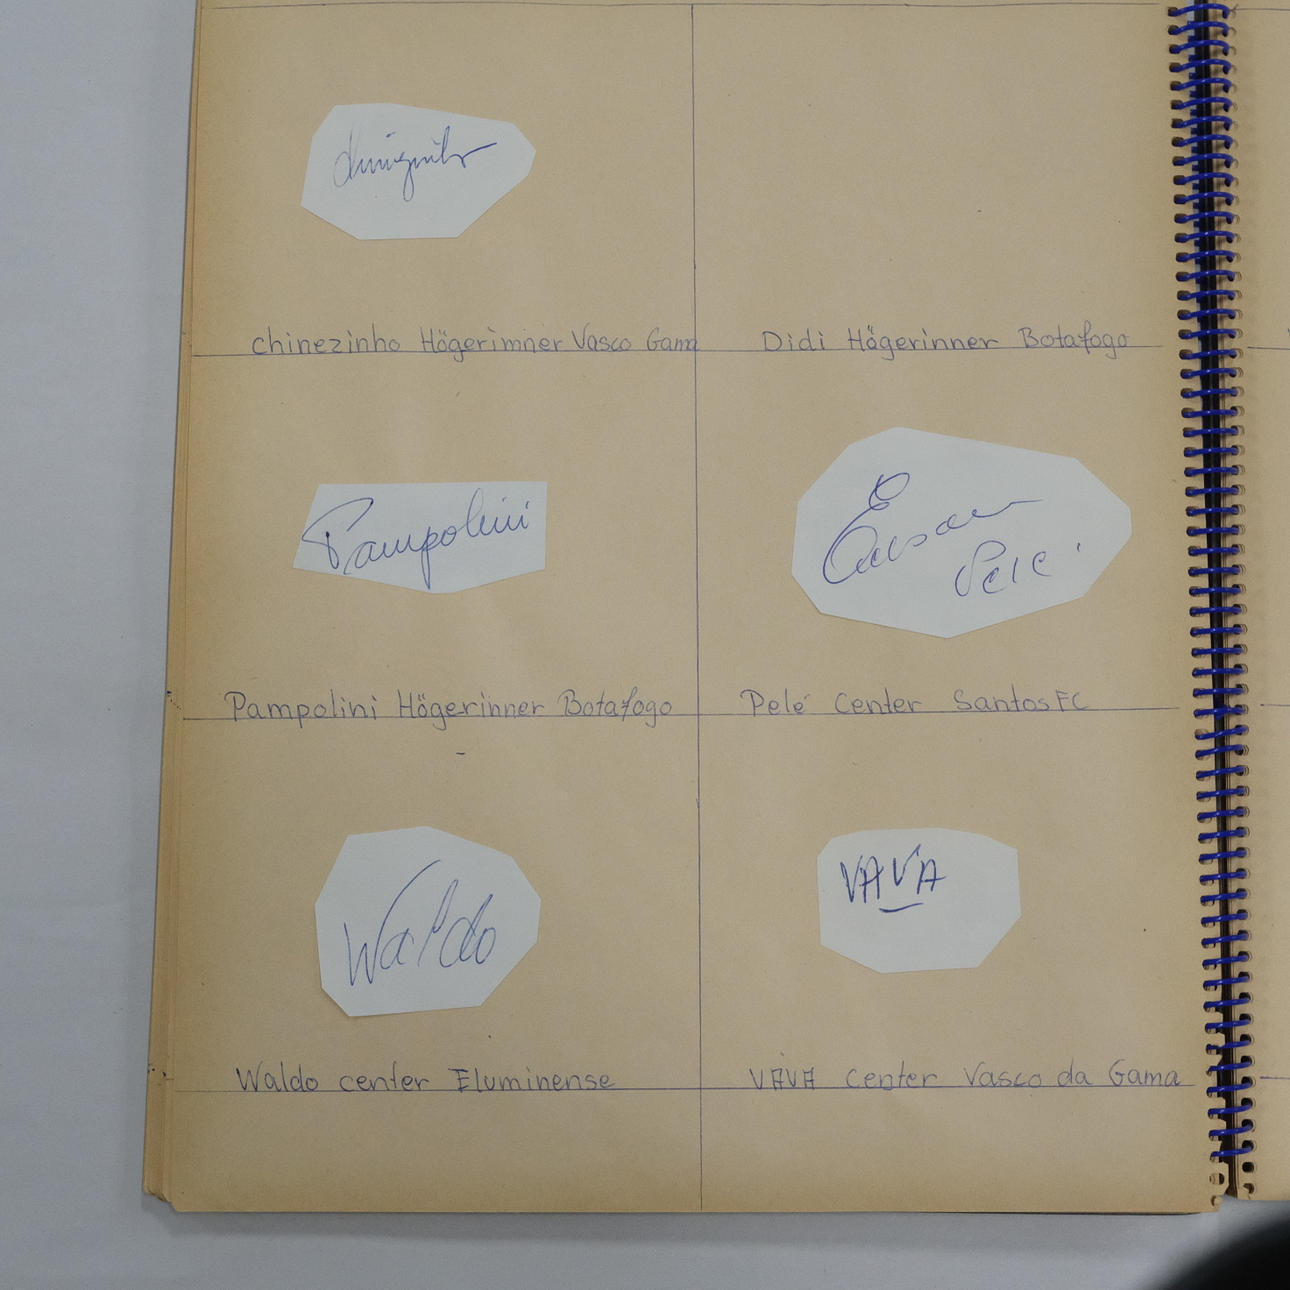 chinezinho Högerinner Vasco Gama
Didi Högerinner Botafogo
Pampolini
Edson
Pelé
Pampolini Högerinner Botafogo
Pelé Center Santos FC
Waldo
VAVA
Waldo center Fluminense
VAVA center Vasco da Gama